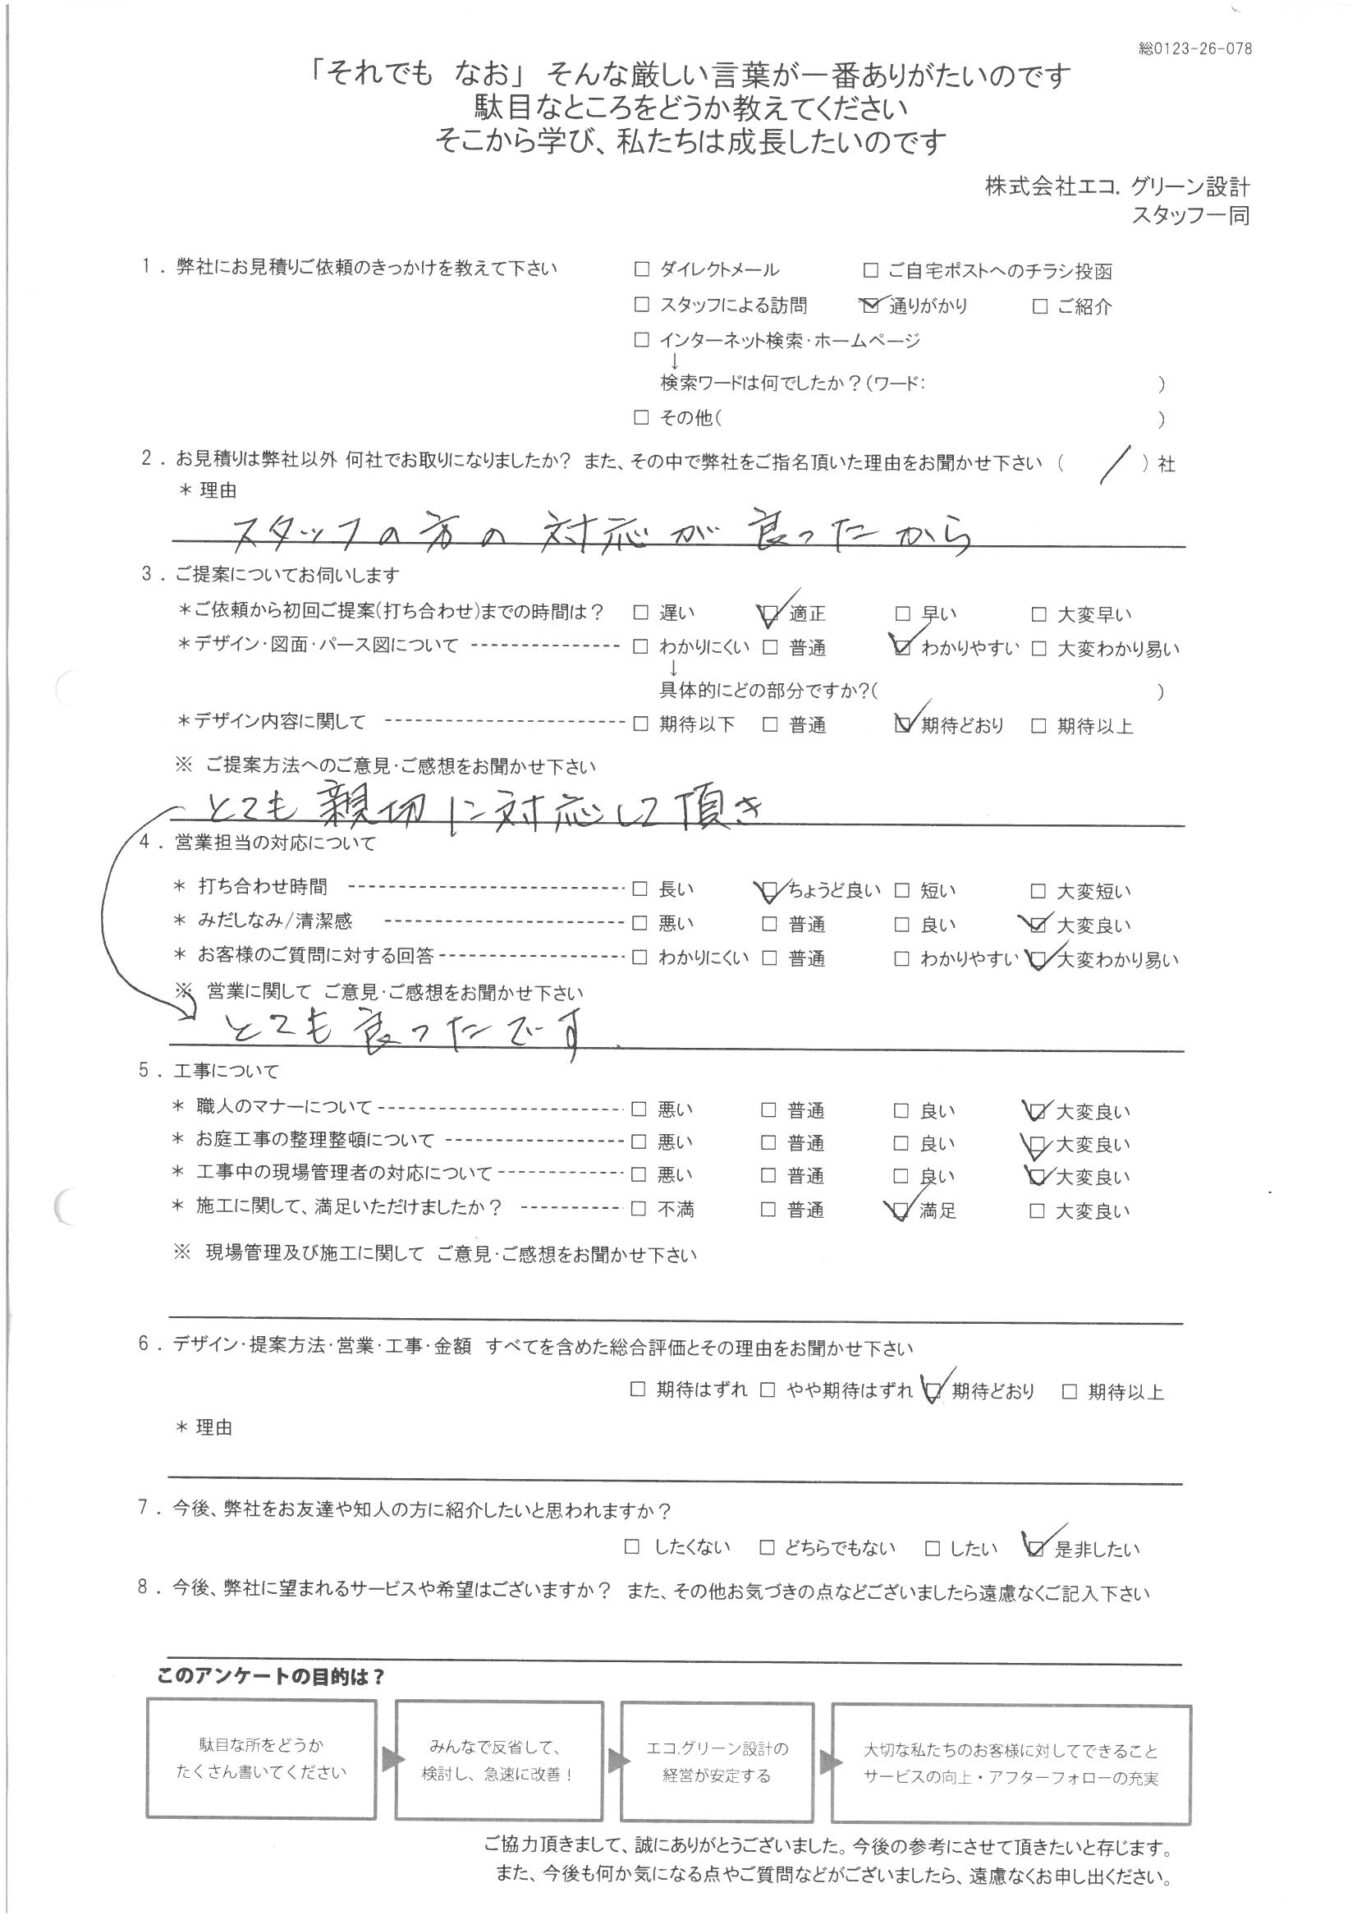 総0123-26-078
「それでも なお」 そんな厳しい言葉が一番ありがたいのです
駄目なところをどうか教えてください
そこから学び、私たちは成長したいのです
株式会社エコ. グリーン設計
スタッフ一同
1. 弊社にお見積りご依頼のきっかけを教えて下さい □ ダイレクトメール □ ご自宅ポストへのチラシ投函
□ スタッフによる訪問 ☑ 通りがかり □ ご紹介
□ インターネット検索・ホームページ
↓
検索ワードは何でしたか？(ワード: )
□ その他( )
2. お見積りは弊社以外 何社でお取りになりましたか？ また、その中で弊社をご指名頂いた理由をお聞かせ下さい ( / ) 社
＊ 理由
スタッフの方の対応が良ったから
3. ご提案についてお伺いします
＊ご依頼から初回ご提案(打ち合わせ)までの時間は？ □ 遅い ☑ 適正 □ 早い □ 大変早い
＊デザイン・図面・パース図について --------------- □ わかりにくい □ 普通 ☑ わかりやすい □ 大変わかり易い
↓
具体的にどの部分ですか?( )
＊デザイン内容に関して ------------------------ □ 期待以下 □ 普通 ☑ 期待どおり □ 期待以上
※ ご提案方法へのご意見・ご感想をお聞かせ下さい
とても親切に対応して頂き
4. 営業担当の対応について
＊ 打ち合わせ時間 ---------------------------- □ 長い ☑ ちょうど良い □ 短い □ 大変短い
＊ みだしなみ/清潔感 ------------------------ □ 悪い □ 普通 □ 良い ☑ 大変良い
＊ お客様のご質問に対する回答------------------- □ わかりにくい □ 普通 □ わかりやすい ☑ 大変わかり易い
※ 営業に関して ご意見・ご感想をお聞かせ下さい
とても良ったです.
5. 工事について
＊ 職人のマナーについて------------------------- □ 悪い □ 普通 □ 良い ☑ 大変良い
＊ お庭工事の整理整頓について ------------------ □ 悪い □ 普通 □ 良い ☑ 大変良い
＊ 工事中の現場管理者の対応について------------- □ 悪い □ 普通 □ 良い ☑ 大変良い
＊ 施工に関して、満足いただけましたか？ ---------- □ 不満 □ 普通 ☑ 満足 □ 大変良い
※ 現場管理及び施工に関して ご意見・ご感想をお聞かせ下さい
6. デザイン・提案方法・営業・工事・金額 すべてを含めた総合評価とその理由をお聞かせ下さい
□ 期待はずれ □ やや期待はずれ ☑ 期待どおり □ 期待以上
＊ 理由
7. 今後、弊社をお友達や知人の方に紹介したいと思われますか？
□ したくない □ どちらでもない □ したい ☑ 是非したい
8. 今後、弊社に望まれるサービスや希望はございますか？ また、その他お気づきの点などございましたら遠慮なくご記入下さい
このアンケートの目的は？
駄目な所をどうか
たくさん書いてください
みんなで反省して、
検討し、急速に改善！
エコ.グリーン設計の
経営が安定する
大切な私たちのお客様に対してできること
サービスの向上・アフターフォローの充実
ご協力頂きまして、誠にありがとうございました。今後の参考にさせて頂きたいと存じます。
また、今後も何か気になる点やご質問などがございましたら、遠慮なくお申し出ください。